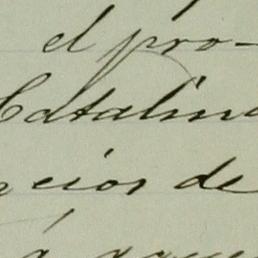 el pro-
Catalina
cios de